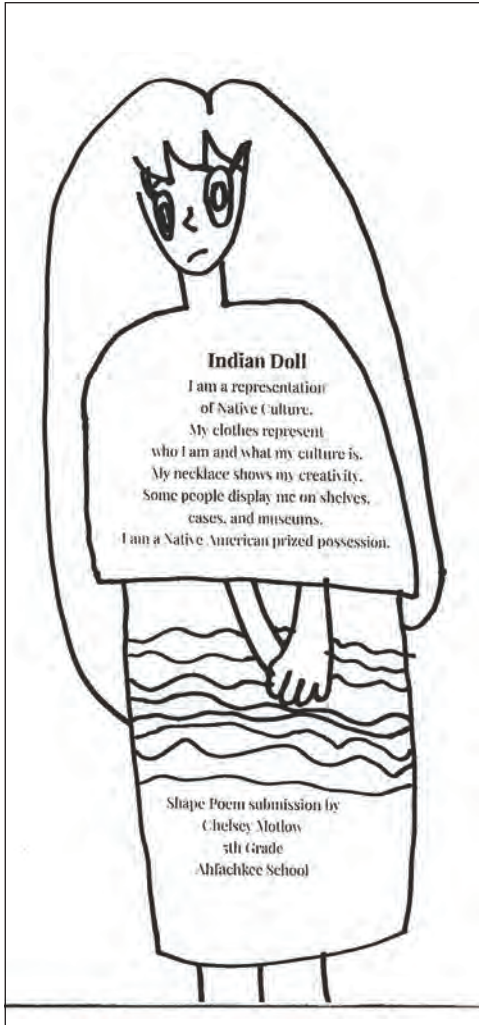 Indian Doll
I am a representation
of Native Culture.
My clothes represent
who I am and what my culture is.
My necklace shows my creativity.
Some people display me on shelves,
cases, and museums.
I am a Native American prized possession.
Shape Poem submission by
Chelsey Motlow
5th Grade
Ahfachkee School